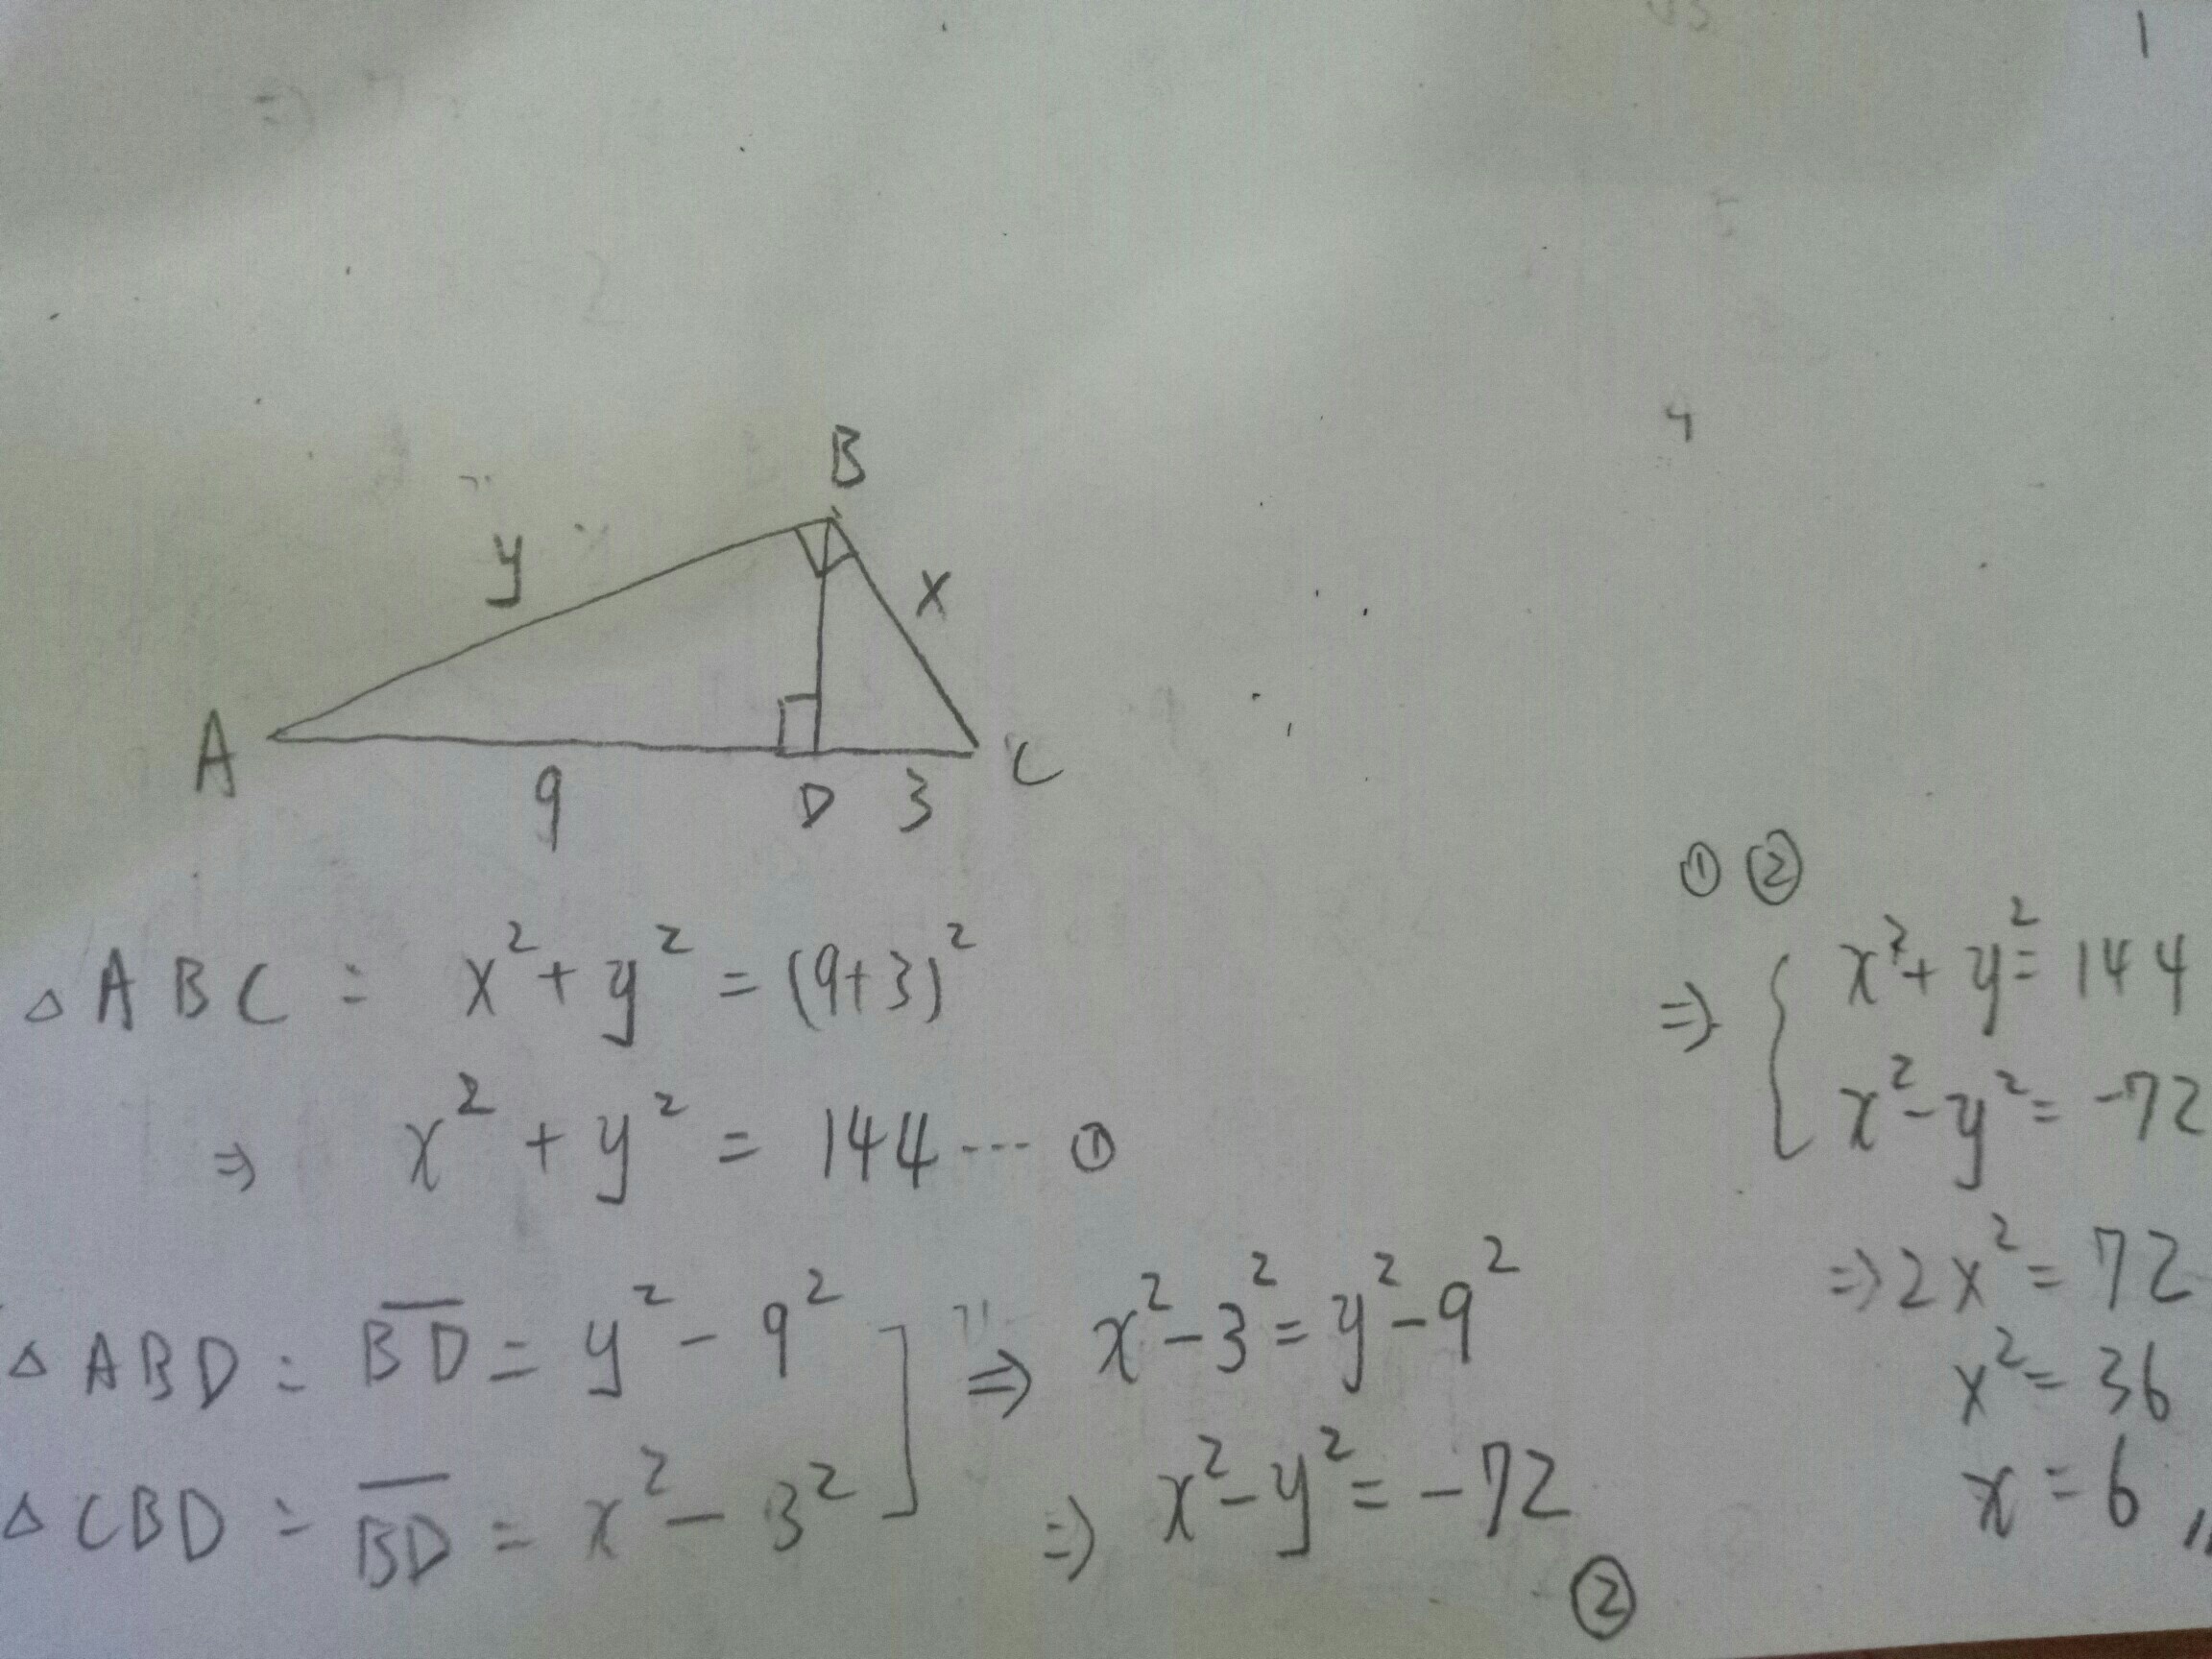 B
y
x
A
C
9
D
3
△ABC = x² + y² = (9+3)²
⇒ x² + y² = 144 ---- ①
△ABD = BD̅ = y² - 9²
△CBD = BD̅ = x² - 3²
⇒ x² - 3² = y² - 9²
⇒ x² - y² = -72
②
① ②
⇒ { x² + y² = 144
x² - y² = -72
⇒ 2x² = 72
x² = 36
x = 6 〃